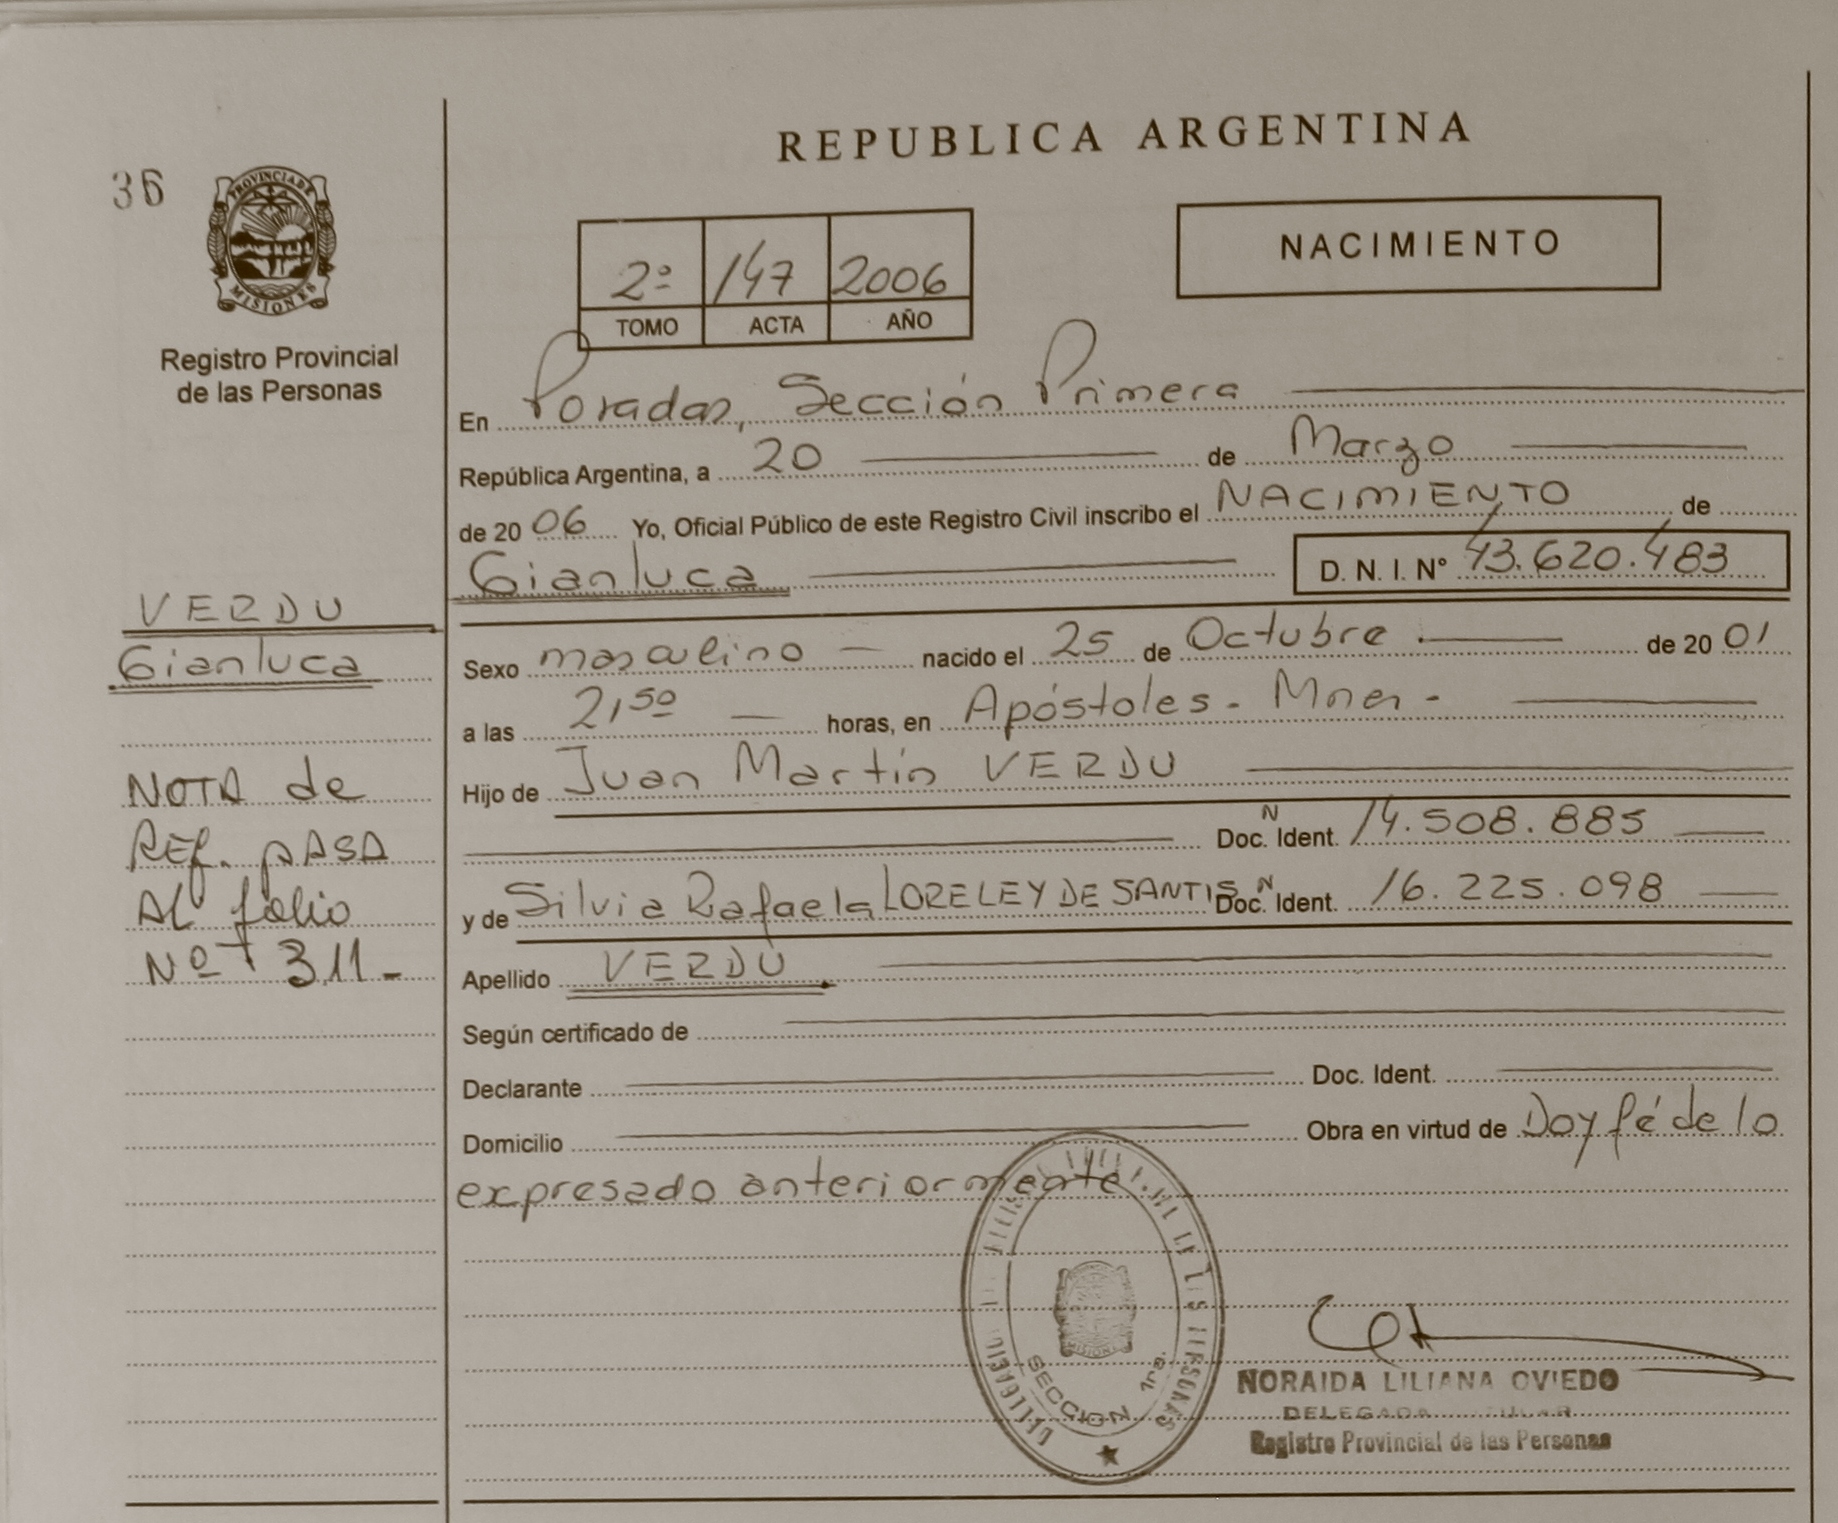 REPUBLICA ARGENTINA
36
PROVINCIA DE
MISIONES
Registro Provincial
de las Personas
NACIMIENTO
2º 147 2006
TOMO ACTA AÑO
En Posadas, Sección Primera
República Argentina, a 20 de Marzo
de 20 06 Yo, Oficial Público de este Registro Civil inscribo el NACIMIENTO de
Gianluca D. N. I. Nº 43.620.483
VERDU
Gianluca
NOTA de
REf. pASA
Al folio
Nº 311-
Sexo masculino nacido el 25 de Octubre de 20 01
a las 21,50 horas, en Apóstoles - Mnes -
Hijo de Juan Martín VERDU
Doc. N Ident. 14.508.885
y de Silvia Rafaela LORELEY DE SANTIS Doc. N Ident. 16.225.098
Apellido VERDU
Según certificado de
Declarante Doc. Ident.
Domicilio Obra en virtud de Doy fé de lo
expresado anteriormente
SECCION 1ra.
MISIONES
NORAIDA LILIANA OVIEDO
DELEGADA
Registro Provincial de las Personas